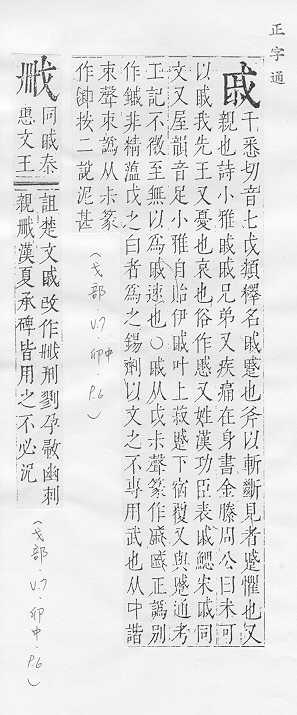 正字通
戚
千悉切音七戉類釋名戚蹙也斧以斬斷見者蹙懼也又
親也詩小雅戚戚兄弟又疾痛在身書金縢周公曰未可
以戚我先王又憂也哀也俗作慼又姓漢功臣表戚鰓宋戚同
文又屋韻音足小雅自貽伊戚叶上菽蹙下宿覆又與蹙通考
工記不微至無以爲戚速也○戚从戊尗聲篆作正譌別
作鏚非精薀戊之白者爲之錫劑以文之不專用武也从中諧
朿聲朿譌从尗篆
作按二說泥甚
(戈部.V.7.卯中 P.6)
同戚秦
惠文王
詛楚文戚改作刑孕幽刺
親漢夏承碑皆用之不必泥
(戈部.V.7.卯中.P.6)